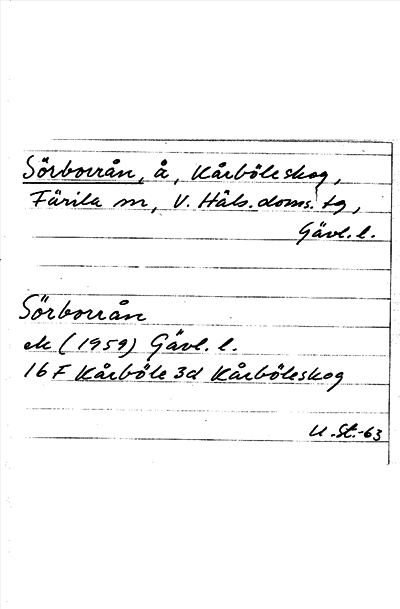 Sörborrån, å, Kårböleskog,
Färila sn, V. Häls. doms. tg,
Gävl. l.
Sörborrån
ek (1959) Gävl. l.
16 F Kårböle 3d Kårböleskog
U. St.-63